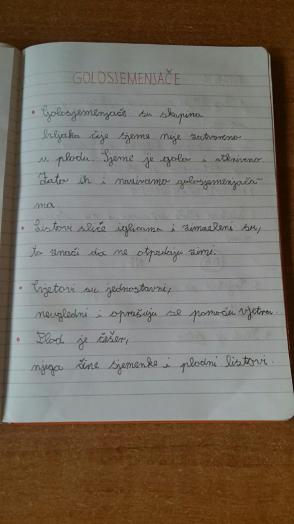 GOLOSJEMENJAČE
• Golosjemenjače su skupina
biljaka čije sjeme nije zatvoreno
u plodu. Sjeme je golo i otkriveno.
Zato ih i nazivamo golosjemenjača-
ma.
• Listovi sliče iglicama i zimzeleni su,
to znači da ne otpadaju zimi.
• Cvjetovi su jednostavni,
neugledni i oprašuju se pomoću vjetra.
• Plod je češer,
njega čine sjemenke i plodni listovi.